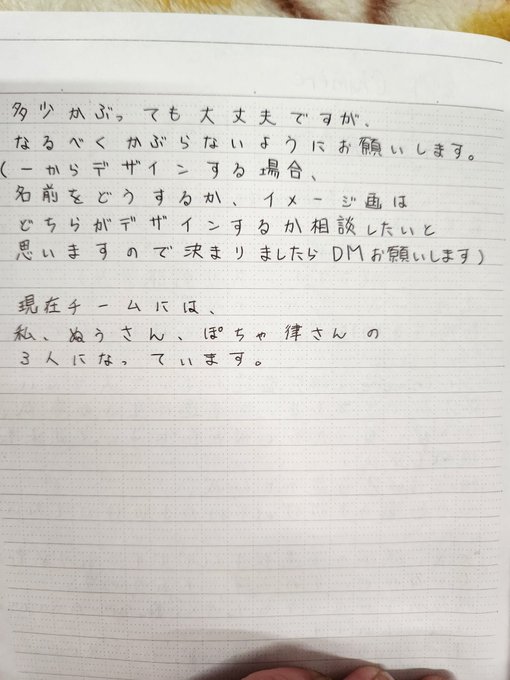 多少かぶっても大丈夫ですが、
なるべくかぶらないようにお願いします。
(一からデザインする場合、
名前をどうするか、イメージ画は
どちらがデザインするか相談したいと
思いますので決まりましたらDMお願いします)
現在チームには、
私、ぬぅさん、ぽちゃ律さんの
3人になっています。